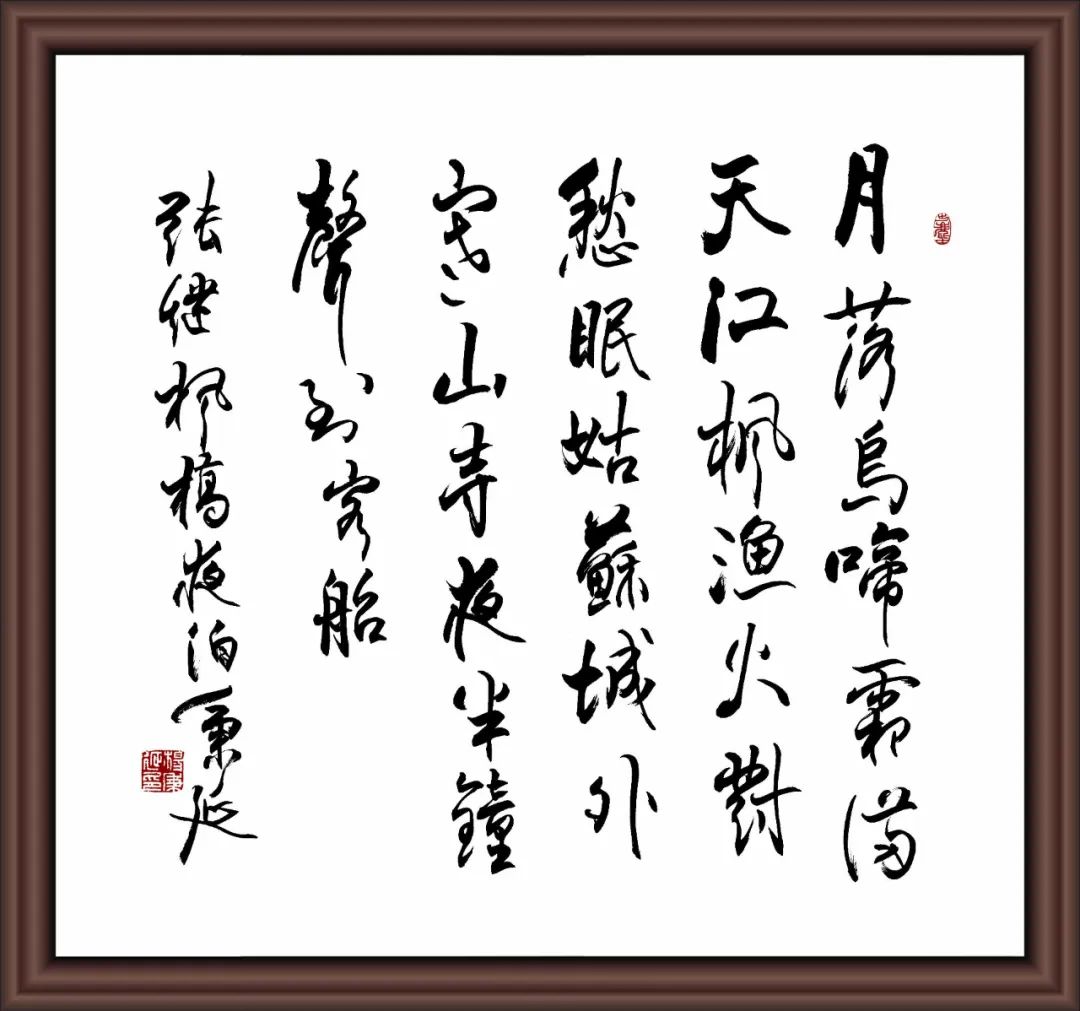 月落烏啼霜滿
天江楓漁火對
愁眠姑蘇城外
寒山寺夜半鐘
聲到客船
張继楓橋夜泊秉延